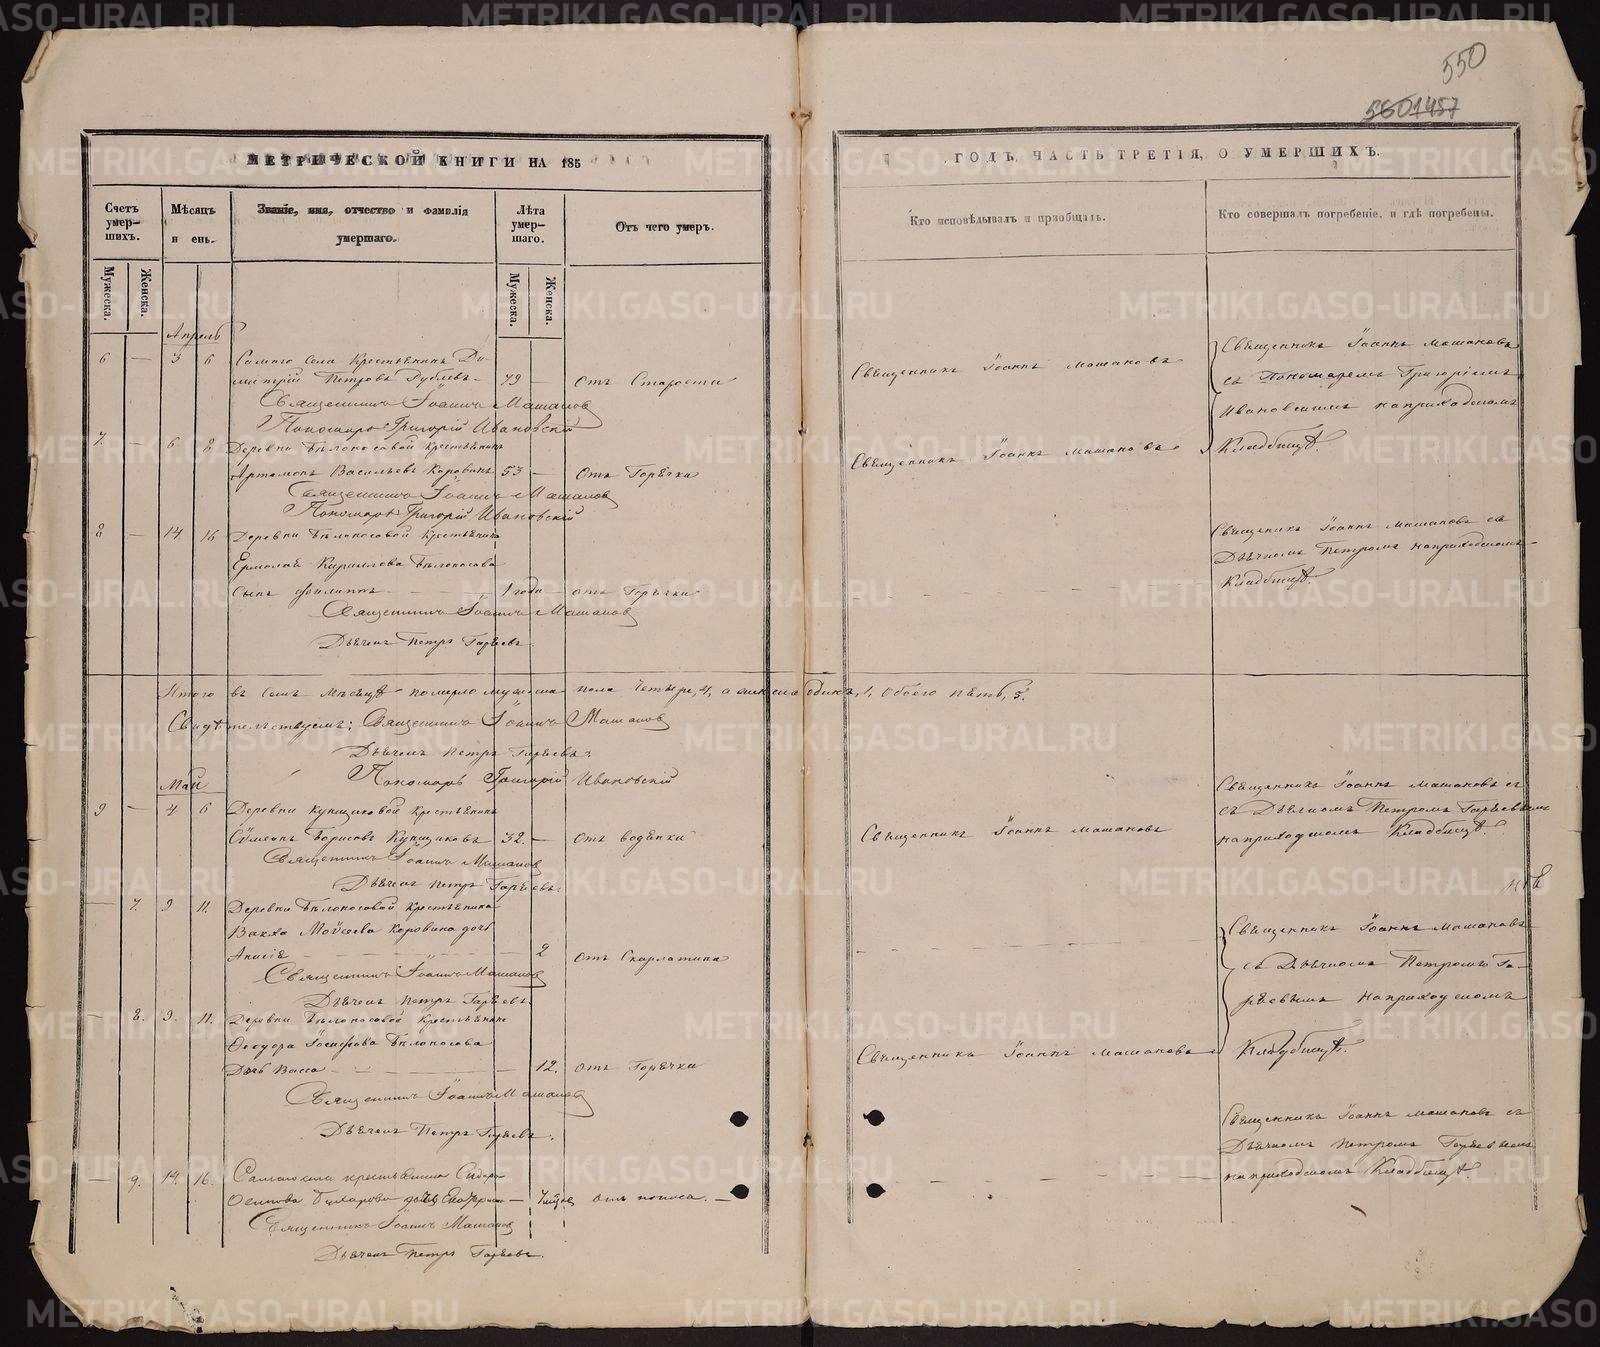 550
5601457
МЕТРИЧЕСКОЙ КНИГИ НА 185
ГОДЪ, ЧАСТЬ ТРЕТІЯ, О УМЕРШИХЪ.
Счетъ умер-шихъ.
Мужеска.
Женска.
Мѣсяцъ и ень.
Званіе, имя, отчество и фамилія умершаго.
Лѣта умер-шаго.
Мужеска.
Женска.
Отъ чего умеръ.
Кто исповѣдывалъ и приобщалъ.
Кто совершалъ погребеніе, и гдѣ погребены.
Апрель
6 — 3 6 Самаго Села Крестьянинъ Ди-
митрій Петровъ 79 — отъ Старости
Священникъ Іоаннъ Машановъ
Священникъ Іоаннъ Машановъ
съ Пономаремъ Григоріемъ
Ивановскимъ на приходскомъ
Кладбищѣ.
Священникъ Іоаннъ Машановъ
Пономарь Григорій Ивановскій
7. — 6 8 Деревни Бѣлоносовой Крестьянинъ
Артамонъ Васильевъ Коровинъ 53 — отъ Горячки
Священникъ Іоаннъ Машановъ
Священникъ Іоаннъ Машановъ
Пономарь Григорій Ивановскій
8 — 14 16 Деревни Бѣлоносовой Крестьянина
Ермолая Кириллова Бѣлоносова
Сынъ Филиппъ 1 года отъ Горячки
Священникъ Іоаннъ Машановъ съ
Дьячкомъ Петромъ на приходскомъ
Кладбищѣ.
Священникъ Іоаннъ Машановъ
Дьячекъ Петръ Гаряевъ
Итого въ семъ мѣсяцѣ померло мужеска пола четыре, 4, а женска одинъ, 1, обоего пять, 5.
Свидѣтельствуемъ: Священникъ Іоаннъ Машановъ
Дьячекъ Петръ Гаряевъ
Пономарь Григорій Ивановскій
Май
9 — 4 6 Деревни Крестьянинъ
Сѵмеонъ Борисовъ 32. — отъ водянки
Священникъ Іоаннъ Машановъ
Священникъ Іоаннъ Машановъ съ
съ Дьячкомъ Петромъ Гаряевымъ
на приходскомъ Кладбищѣ.
Священникъ Іоаннъ Машановъ
Дьячекъ Петръ Гаряевъ.
— 7. 9 11. Деревни Бѣлоносовой Крестьянина
Вакха Моѵсеева Коровина дочь
2 отъ Скарлатина
Священникъ Іоаннъ Машановъ
съ Дьячкомъ Петромъ Га-
ряевымъ на приходскомъ
Кладбищѣ.
Священникъ Іоаннъ Машановъ
Дьячекъ Петръ Гаряевъ.
— 8. 9. 11. Деревни Бѣлоносовой Крестьянина
Ѳеодора Іосифова Бѣлоносова
Дочь Васса 12. отъ Горячки
Священникъ Іоаннъ Машановъ
Священникъ Іоаннъ Машановъ
Дьячекъ Петръ Гаряевъ.
— 9. 14. 16. Самаго села крестьянина Сидора
Осипова дочь отъ поноса. —
Священникъ Іоаннъ Машановъ съ
Дьячкомъ Петромъ Гаряевымъ
на приходскомъ Кладбищѣ.
Священникъ Іоаннъ Машановъ
Дьячекъ Петръ Гаряевъ.
METRIKI.GASO-URAL.RU